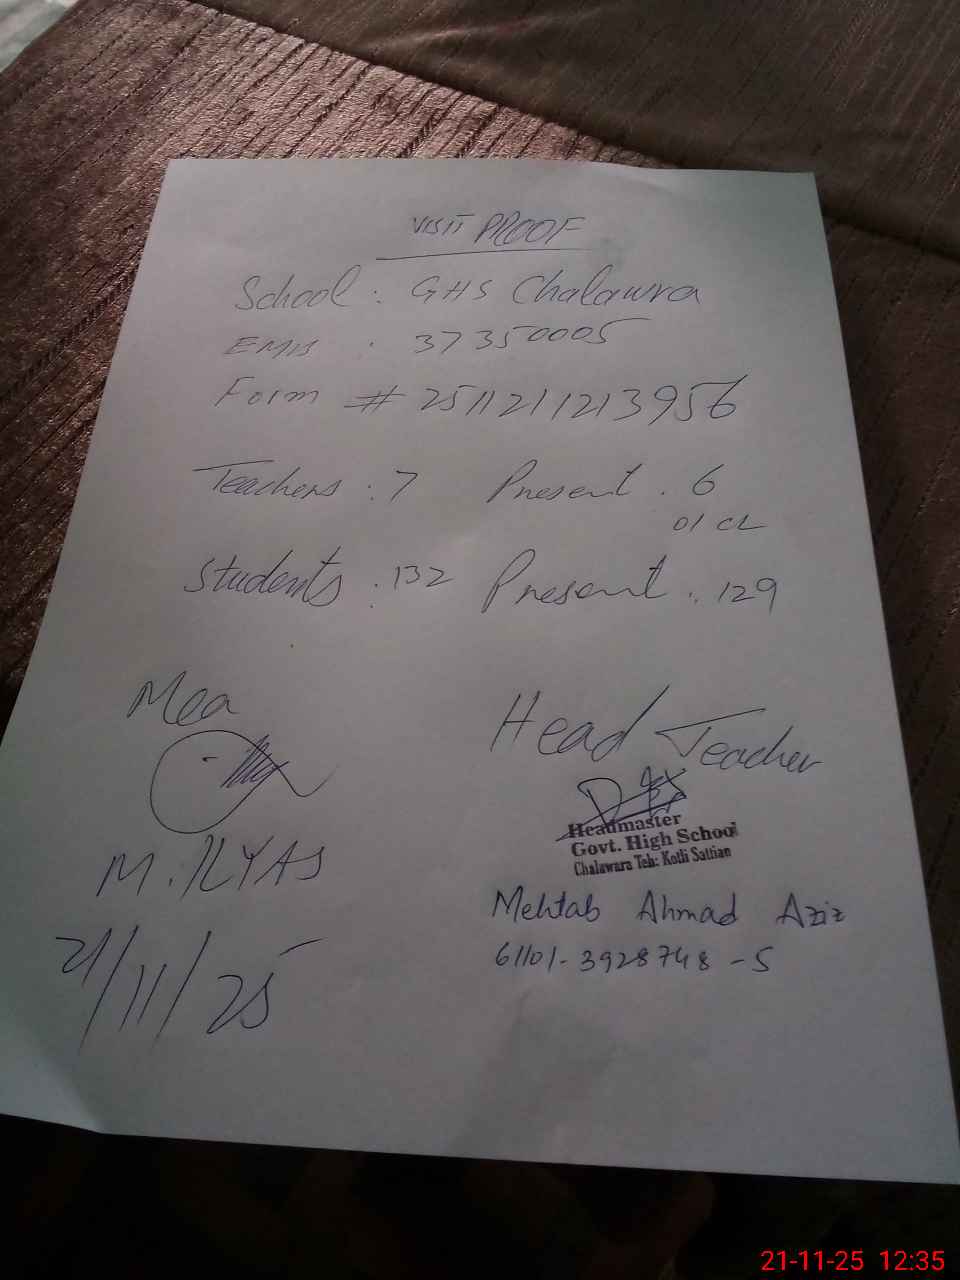 VISIT PROOF
School : GHS Chalawra
EMIS . 37350005
Form # 2511211213956
Teachers : 7 Present . 6
01 CL
Students : 132 Present . 129
Mea
M. ILYAS
21/11/25
Head Teacher
Headmaster
Govt. High School
Chalawara Teh: Kotli Sattian
Mehtab Ahmad Aziz
61101-3928748-5
21-11-25 12:35